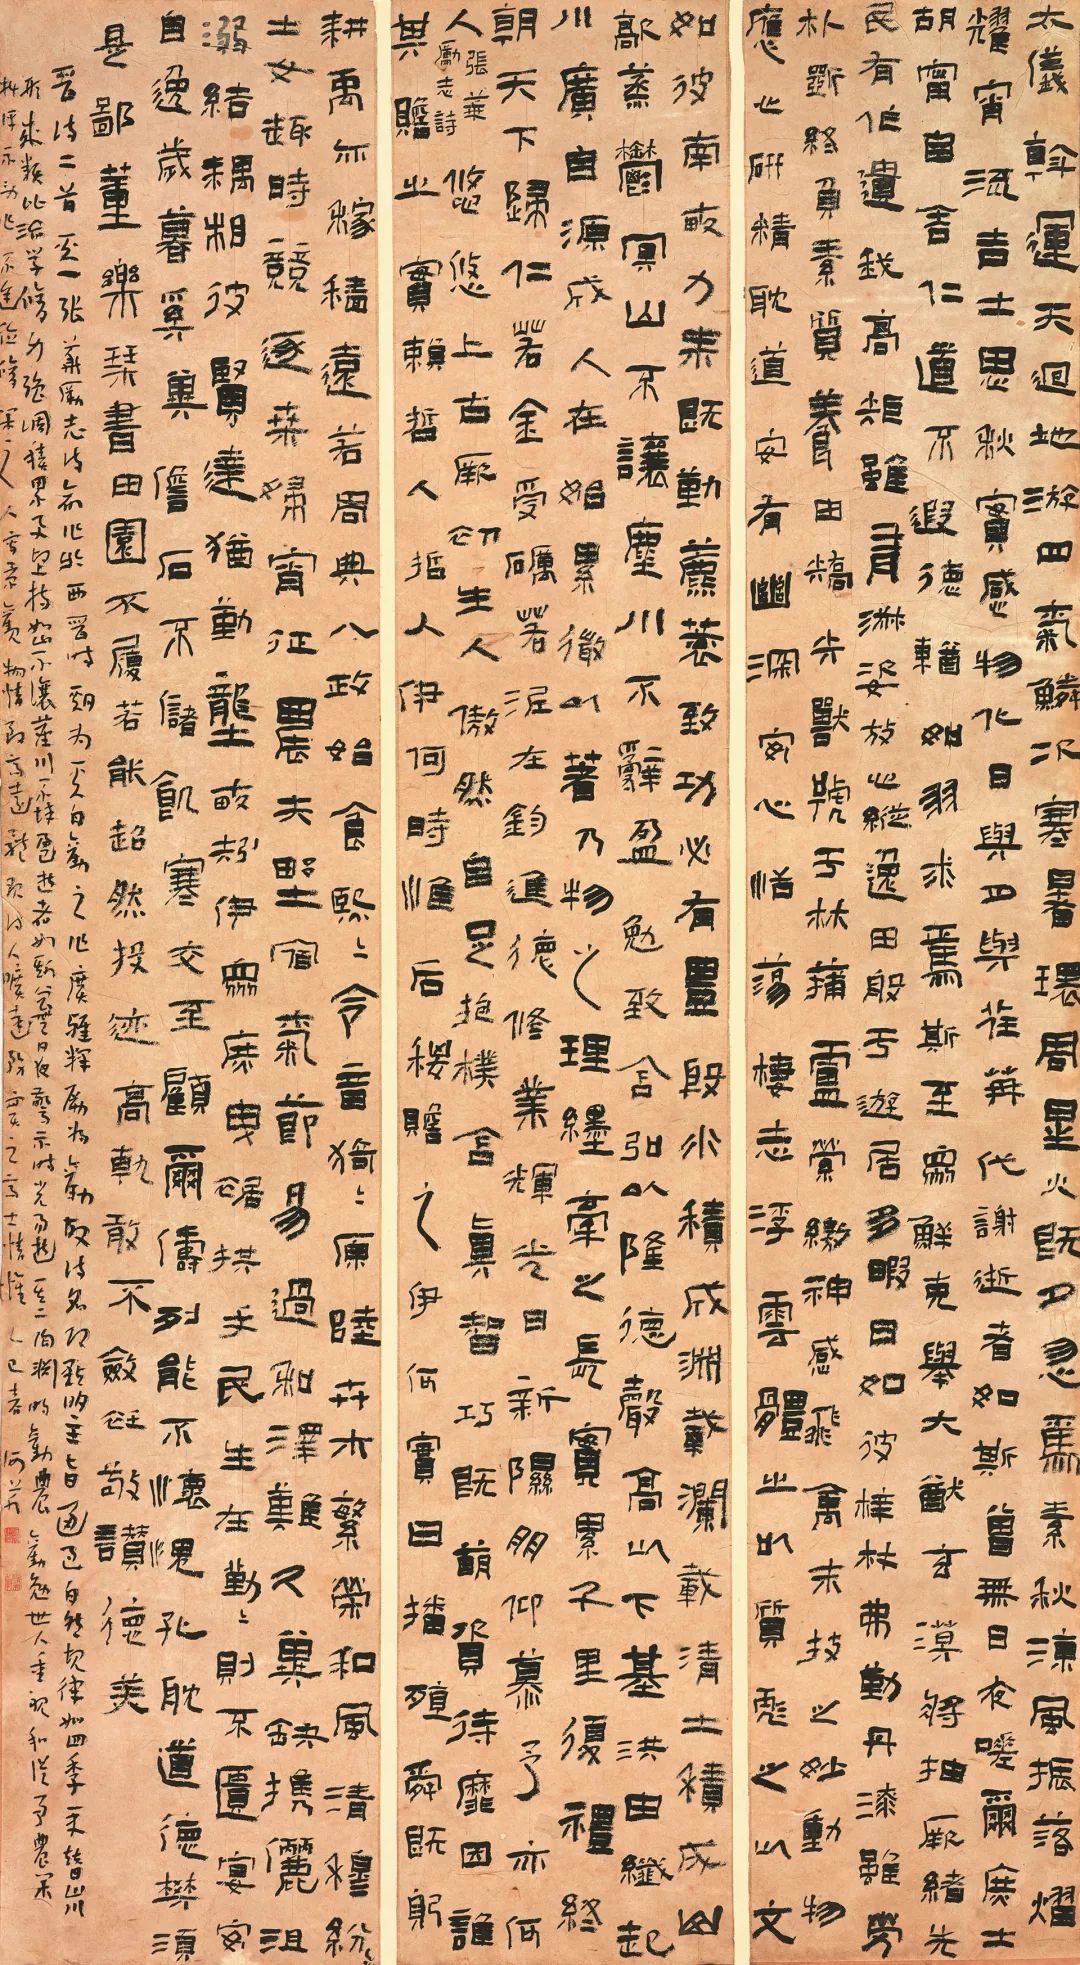 太儀斡運天迴地游四氣鱗次寒暑環周星火既夕忽焉素秋涼風振落熠
耀宵流吉士思秋寔感物化日與月與荏苒代謝逝者如斯曾無日夜嗟爾庶士
胡寧自舍仁道不遐德輶如羽求焉斯至眾鮮克舉大猷玄漠將抽厥緒先
民有作遺我高矩雖有淑姿放心縱逸田般于遊居多暇日如彼梓材弗勤丹漆雖勞
朴斲終負素質養由矯矢獸號于林蒲盧縈繳神感飛禽末技之妙動物
應心研精耽道安有幽深安心恬蕩棲志浮雲體之以質彪之以文
如彼南畝力耒既勤藨蓘致功必有豐殷水積成淵載瀾載清土積成山
歊蒸鬱冥山不讓塵川不辭盈勉致含弘以隆德聲高以下基洪由纖起
川廣自源成人在始累微以著乃物之理纆牽之長實累千里復禮終
朝天下歸仁若金受礪若泥在鈞進德修業輝光日新隰朋仰慕予亦何
人張華勵志詩悠悠上古厥初生人傲然自足抱樸含真智巧既萌資待靡因誰
其贍之實賴哲人哲人伊何時惟后稷贍之伊何實曰播殖舜既躬
耕禹亦稼穡遠若周典八政始食熙〻令音猗〻原陸卉木繁榮和風清穆紛〻
士女趨時競逐桑婦宵征農夫野宿氣節易過和澤難久冀缺攜儷沮
溺結耦相彼賢達猶勤壟畝矧伊眾庶曳裾拱手民生在勤〻則不匱宴安
自逸歲暮奚冀儋石不儲飢寒交至顧爾儔列能不懷愧孔耽道德樊須
是鄙董樂琴書田園不履若能超然投迹高軌敢不斂衽敬讚德美
晋诗二首其一张華勵志诗